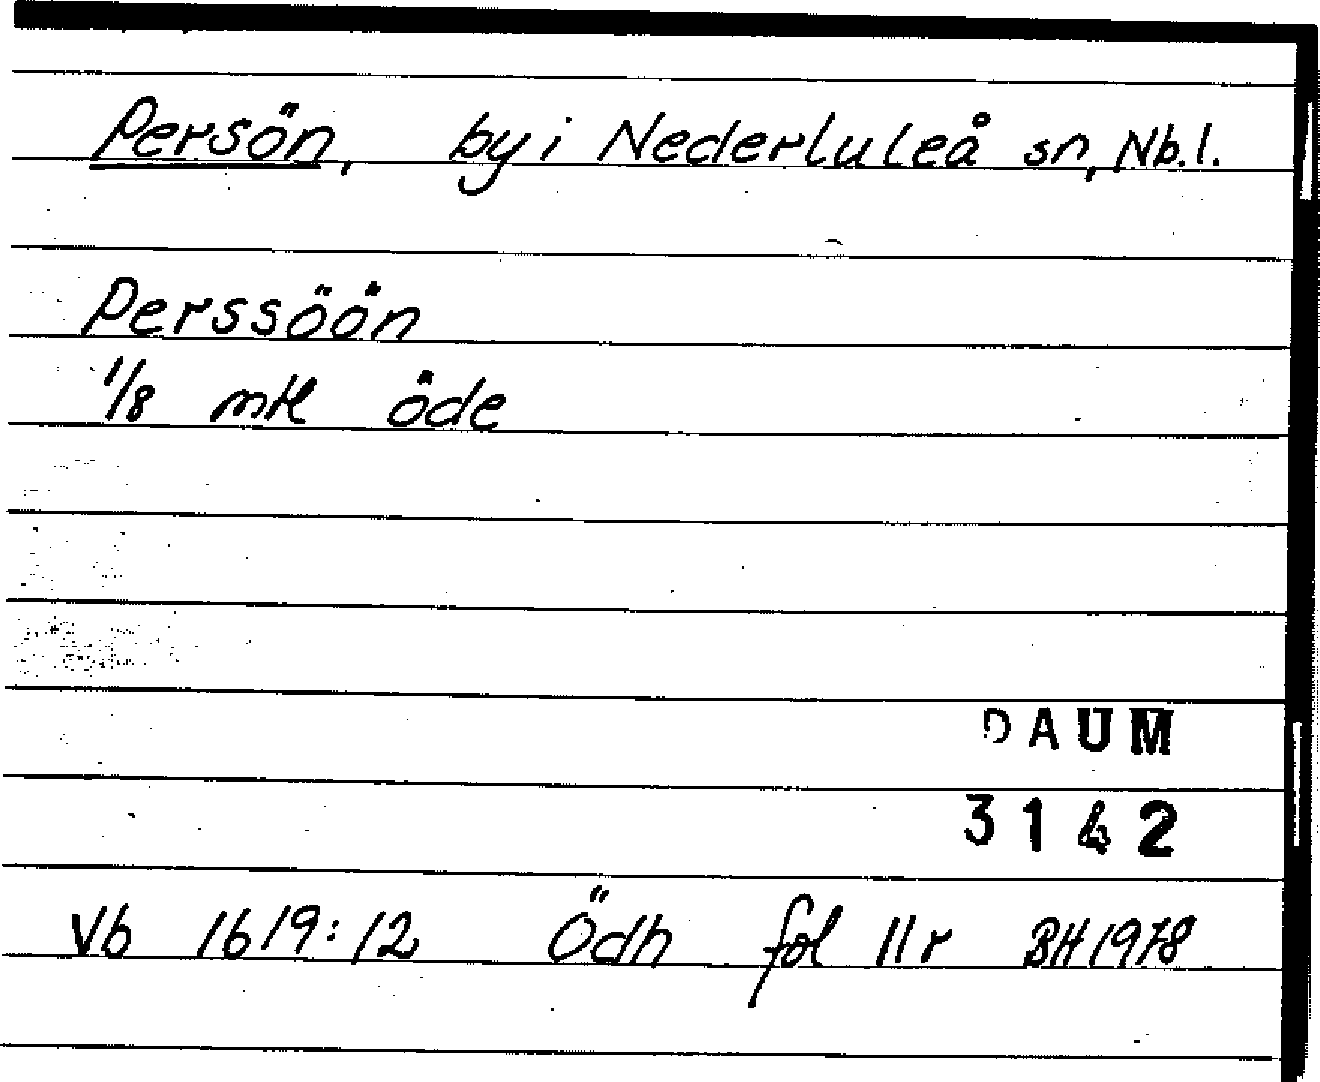 Persön, by i Nederluleå sn, Nb.l.
Perssöön
1/8 mtl öde
DAUM
3142
Vb 1619:12 Ödh fol 11r BH 1978